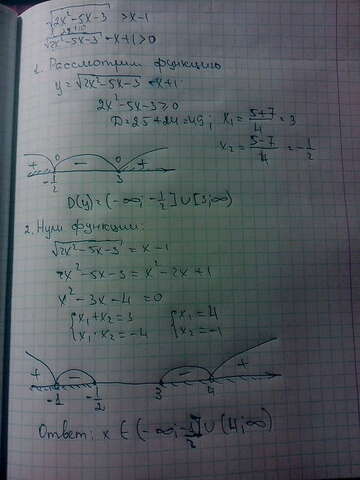 √(2x²-5x-3) > x-1
√(2x²-5x-3) -x+1>0
1. Рассмотрим функцию
y=√(2x²-5x-3) -x+1
2x²-5x-3≥0
D=25+24=49; x₁=(5+7)/4=3
x₂=(5-7)/4=-1/2
+ - +
-1/2 3
D(y)=(-∞;-1/2]∪[3;∞)
2. Нули функции:
√(2x²-5x-3) = x-1
2x²-5x-3=x²-2x+1
x²-3x-4=0
{x₁+x₂=3 {x₁=4
{x₁·x₂=-4 {x₂=-1
+ - - +
-1 -1/2 3 4
Ответ: x∈(-∞;-1/2]∪(4;∞)